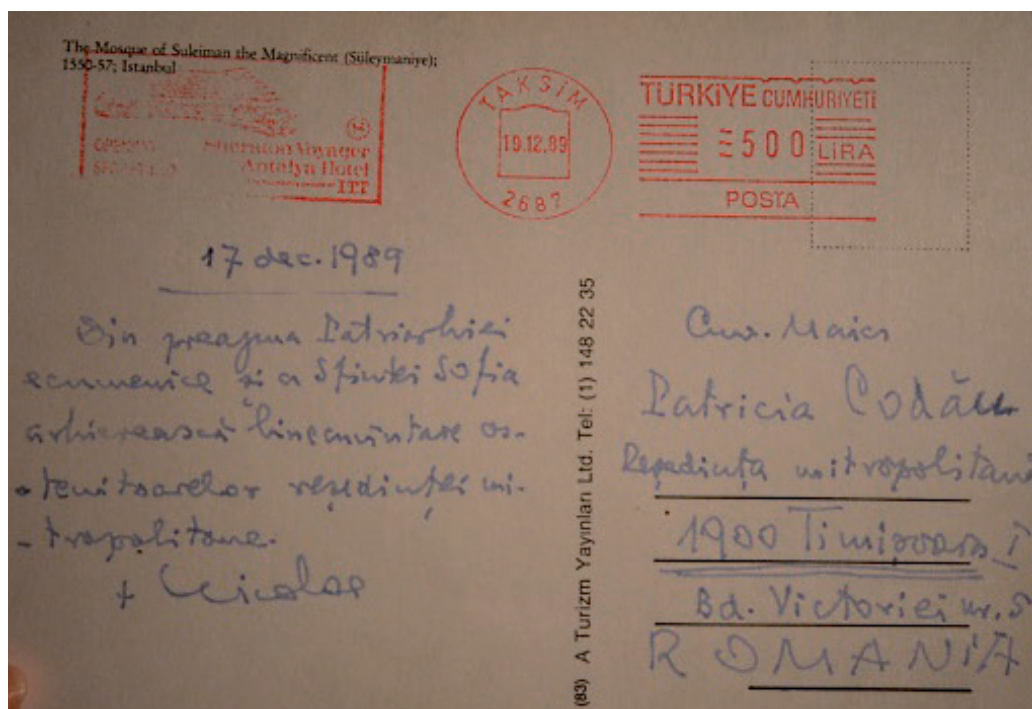 The Mosque of Suleiman the Magnificent (Süleymaniye);
1550-57; Istanbul
Sheraton Voyager
Antalya Hotel
ITT
TAKSİM
19.12.89
2687
TÜRKİYE CUMHURİYETİ
500 LİRA
POSTA
17 dec. 1989
Din preajma Patriarhiei
ecumenice și a Sfintei Sofia
arhierească binecuvîntare os-
tenitoarelor reședinței mi-
tropolitane.
+ Nicolae
(83) A Turizm Yayınları Ltd. Tel: (1) 148 22 35
Cuv. Maica
Patricia Codău
Reședința mitropolitană
1900 Timișoara I
Bd. Victoriei nr.
ROMANIA